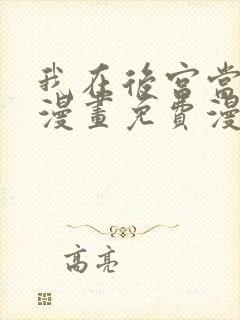 我在後宮當
漫畫免費漫
高亮